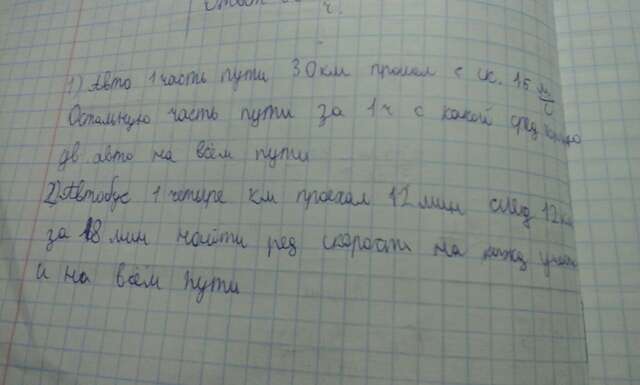 ч.
1) Авто 1 часть пути 30км прошел с ск. 15 м/с
Остальную часть пути за 1ч с какой сред
дв авто на всём пути
2) Автобус 1 четыре км проехал 12 мин след 12км
за 18 мин найти ред скорость на кажд участ
и на всём пути